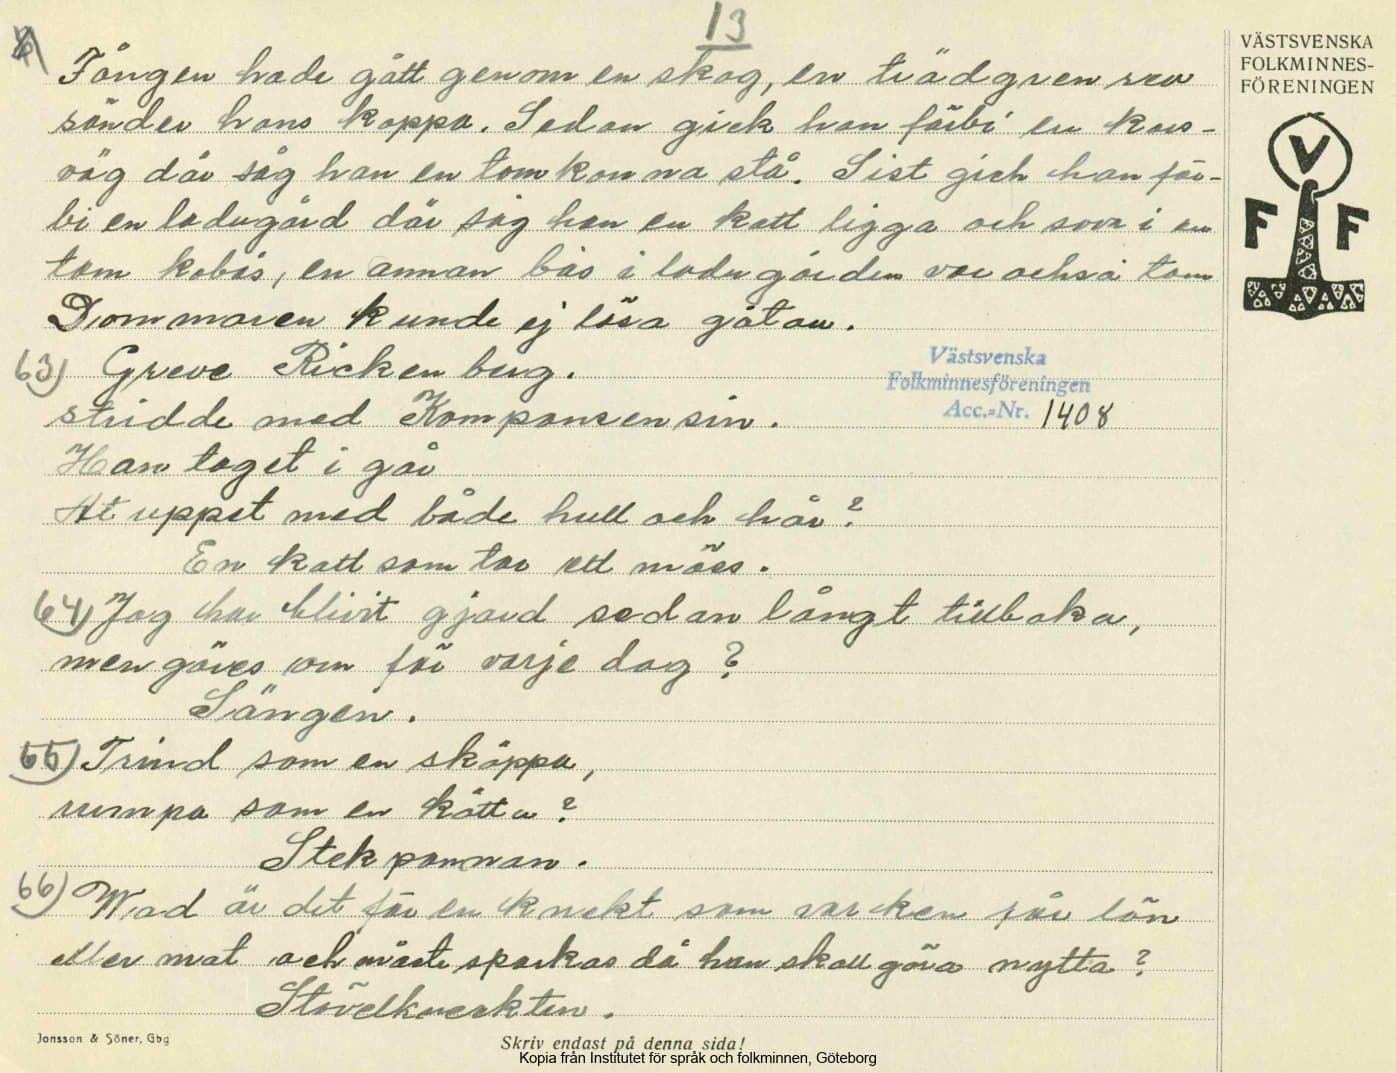 13
Fången hade gått genom en skog, en trädgren rev
sönder hans kappa. Sedan gick han förbi en kors-
väg där såg han en tom kanna stå. Sist gick han för-
bi en ladugård där såg han en katt ligga och sova i en
tom kobås, en annan bås i ladugården var också tom
Dommaren kunde ej lösa gåtan.
63) Greve Rickenberg.
stridde med Kompansensin.
Han taget i går
At uppet med både hull och hår?
En katt som tar ett möss.
64) Jag har blivit gjord sedan långt tillbaka,
men göres om för varje dag?
Sängen.
65) Trind som en skäppa,
rumpa som en kätta?
Stekpannan.
66) Wad är det för en knekt som varken får lön
eller mat och måste sparkas då han skall göra nytta?
Stövelknekten.
VÄSTSVENSKA
FOLKMINNES-
FÖRENINGEN
V
F F
Västsvenska
Folkminnesföreningen
Acc.=Nr. 1408
Jonsson & Söner, Gbg
Skriv endast på denna sida!
Kopia från Institutet för språk och folkminnen, Göteborg